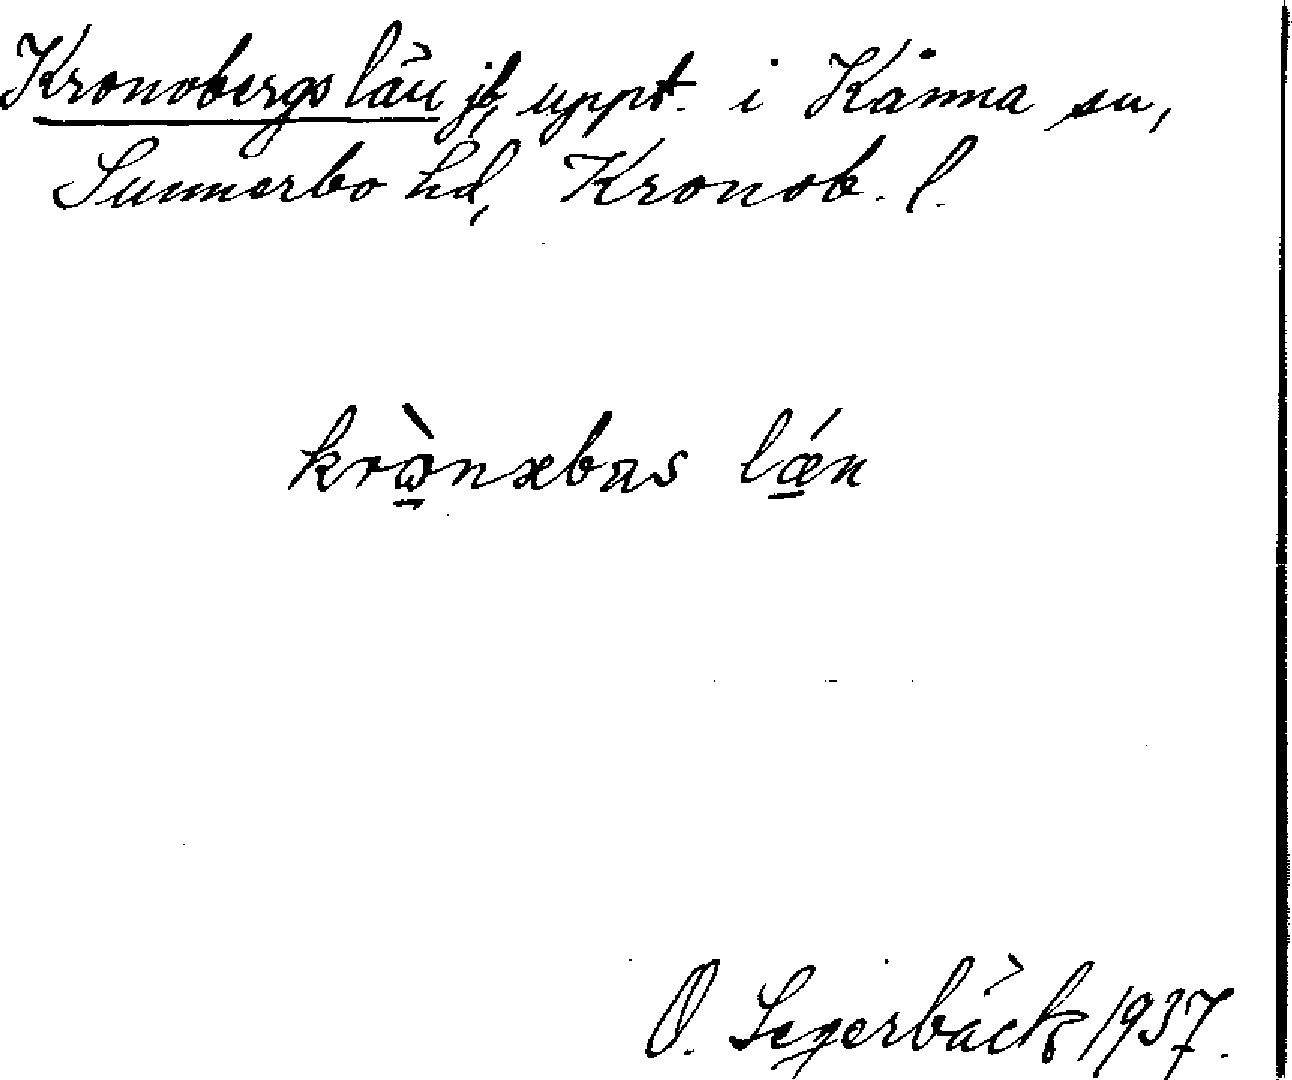 Kronobergs län jb, uppt. i Kånna sn,
Sunnerbo hd, Kronob. l.
län
O. Segerbäck 1937.